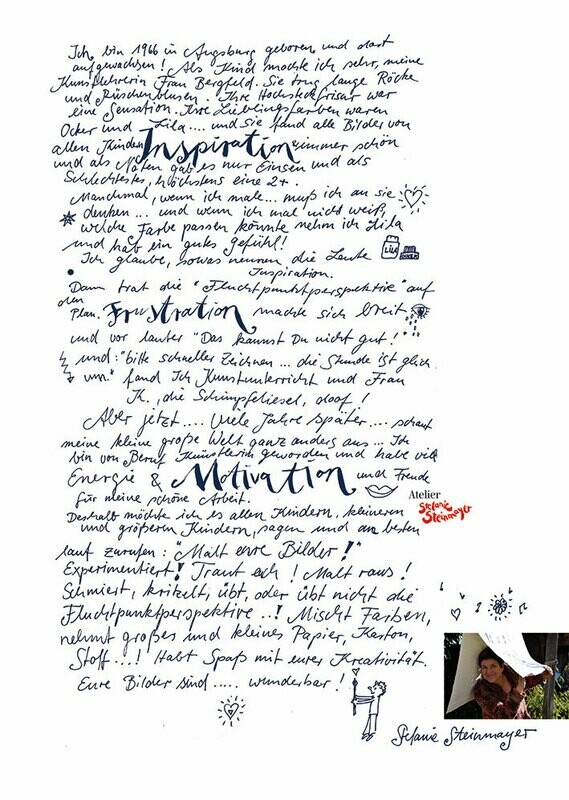 Ich bin 1966 in Augsburg geboren und dort
aufgewachsen! Als Kind mochte ich sehr, meine
Kunstlehrerin Frau Bergfeld. Sie trug lange Röcke
und Rüschenblusen. Ihre Hochsteckfrisur war
eine Sensation. Ihre Lieblingsfarben waren
Ocker und Lila .... und sie fand alle Bilder von
allen Kindern Inspiration immer schön
und als Noten gab es nur Einsen und als
Schlechtestes, höchstens eine 2+.
Manchmal, wenn ich male... muß ich an sie
denken ... und wenn ich mal nicht weiß,
welche Farbe passen könnte nehm ich Lila
und hab ein gutes Gefühl!
LILA
Ich glaube, sowas nennen die Leute
Inspiration.
Dann trat die "Fluchtpunktperspektive" auf
den
Plan. Frustration machte sich breit
und vor lauter "Das kannst Du nicht gut!"
und: "bitte schneller Zeichnen ... die Stunde ist gleich
um." fand Ich Kunstunterricht und Frau
K., die Schimpfeliesel, doof!
Aber jetzt .... Viele Jahre später .... schaut
meine kleine große Welt ganz anders aus... Ich
bin von Beruf Künstlerin geworden und habe viel
Energie & Motivation und Freude
für meine schöne Arbeit.
Atelier
Stefanie
Steinmayer
Deshalb möchte ich es allen Kindern, kleineren
und größeren Kindern, sagen und am besten
laut zurufen: "Malt eure Bilder!"
Experimentiert! Traut euch! Malt raus!
Schmiert, kritzelt, übt, oder übt nicht die
Fluchtpunktperspektive ..! Mischt Farben,
nehmt großes und kleines Papier, Karton,
Stoff ...! Habt Spaß mit eurer Kreativität.
Eure Bilder sind ..... wunderbar!
Stefanie Steinmayer